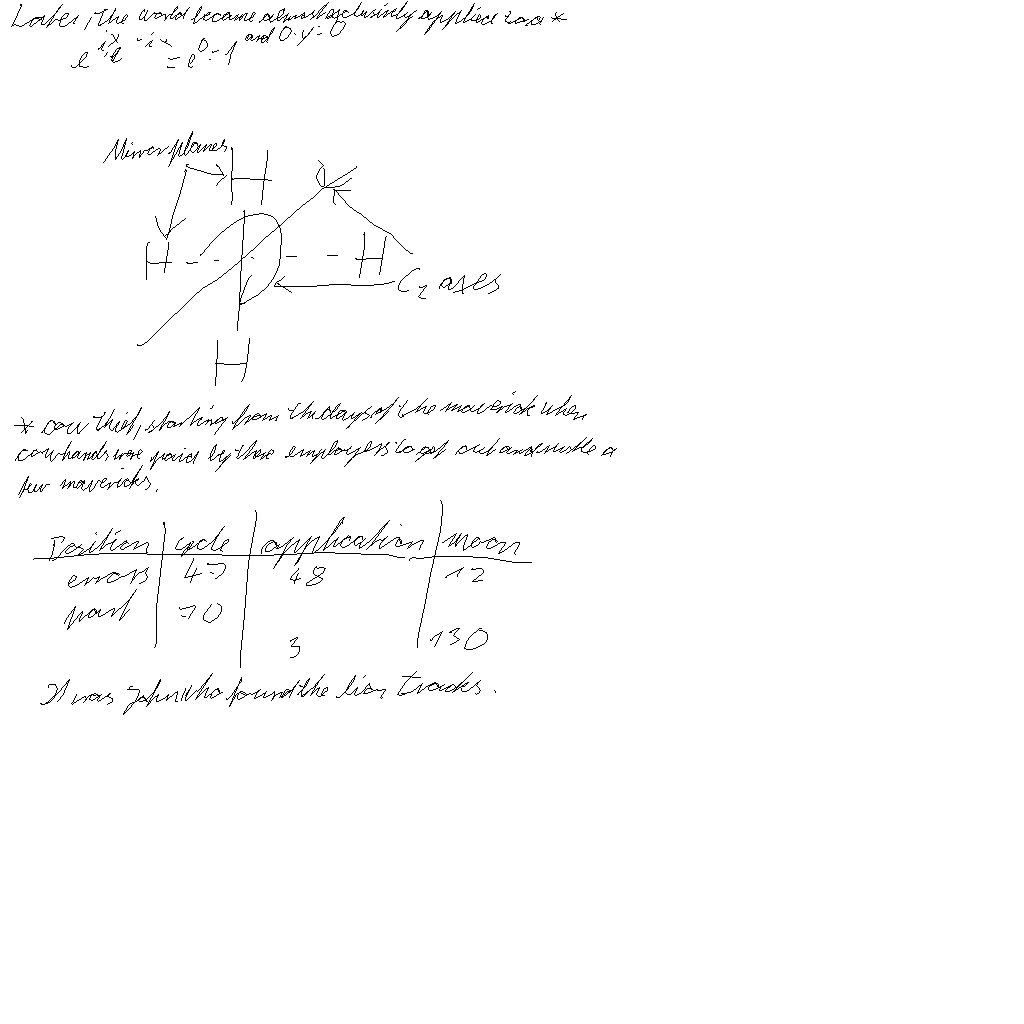 Later, the world became almost exclusively applied to a *
e^{ix} · e^{-ix} = e^0 = 1 and 0 · y = 0
Mirror planes
H
H H
C_2 axes
H
* cow thief, starting from the days of the maverick when
cowhands were paid by their employers to get out and rustle a
few mavericks.
Position cycle application moon
errors 47 48 12
part 70
3 130
It was John who found the lion tracks.